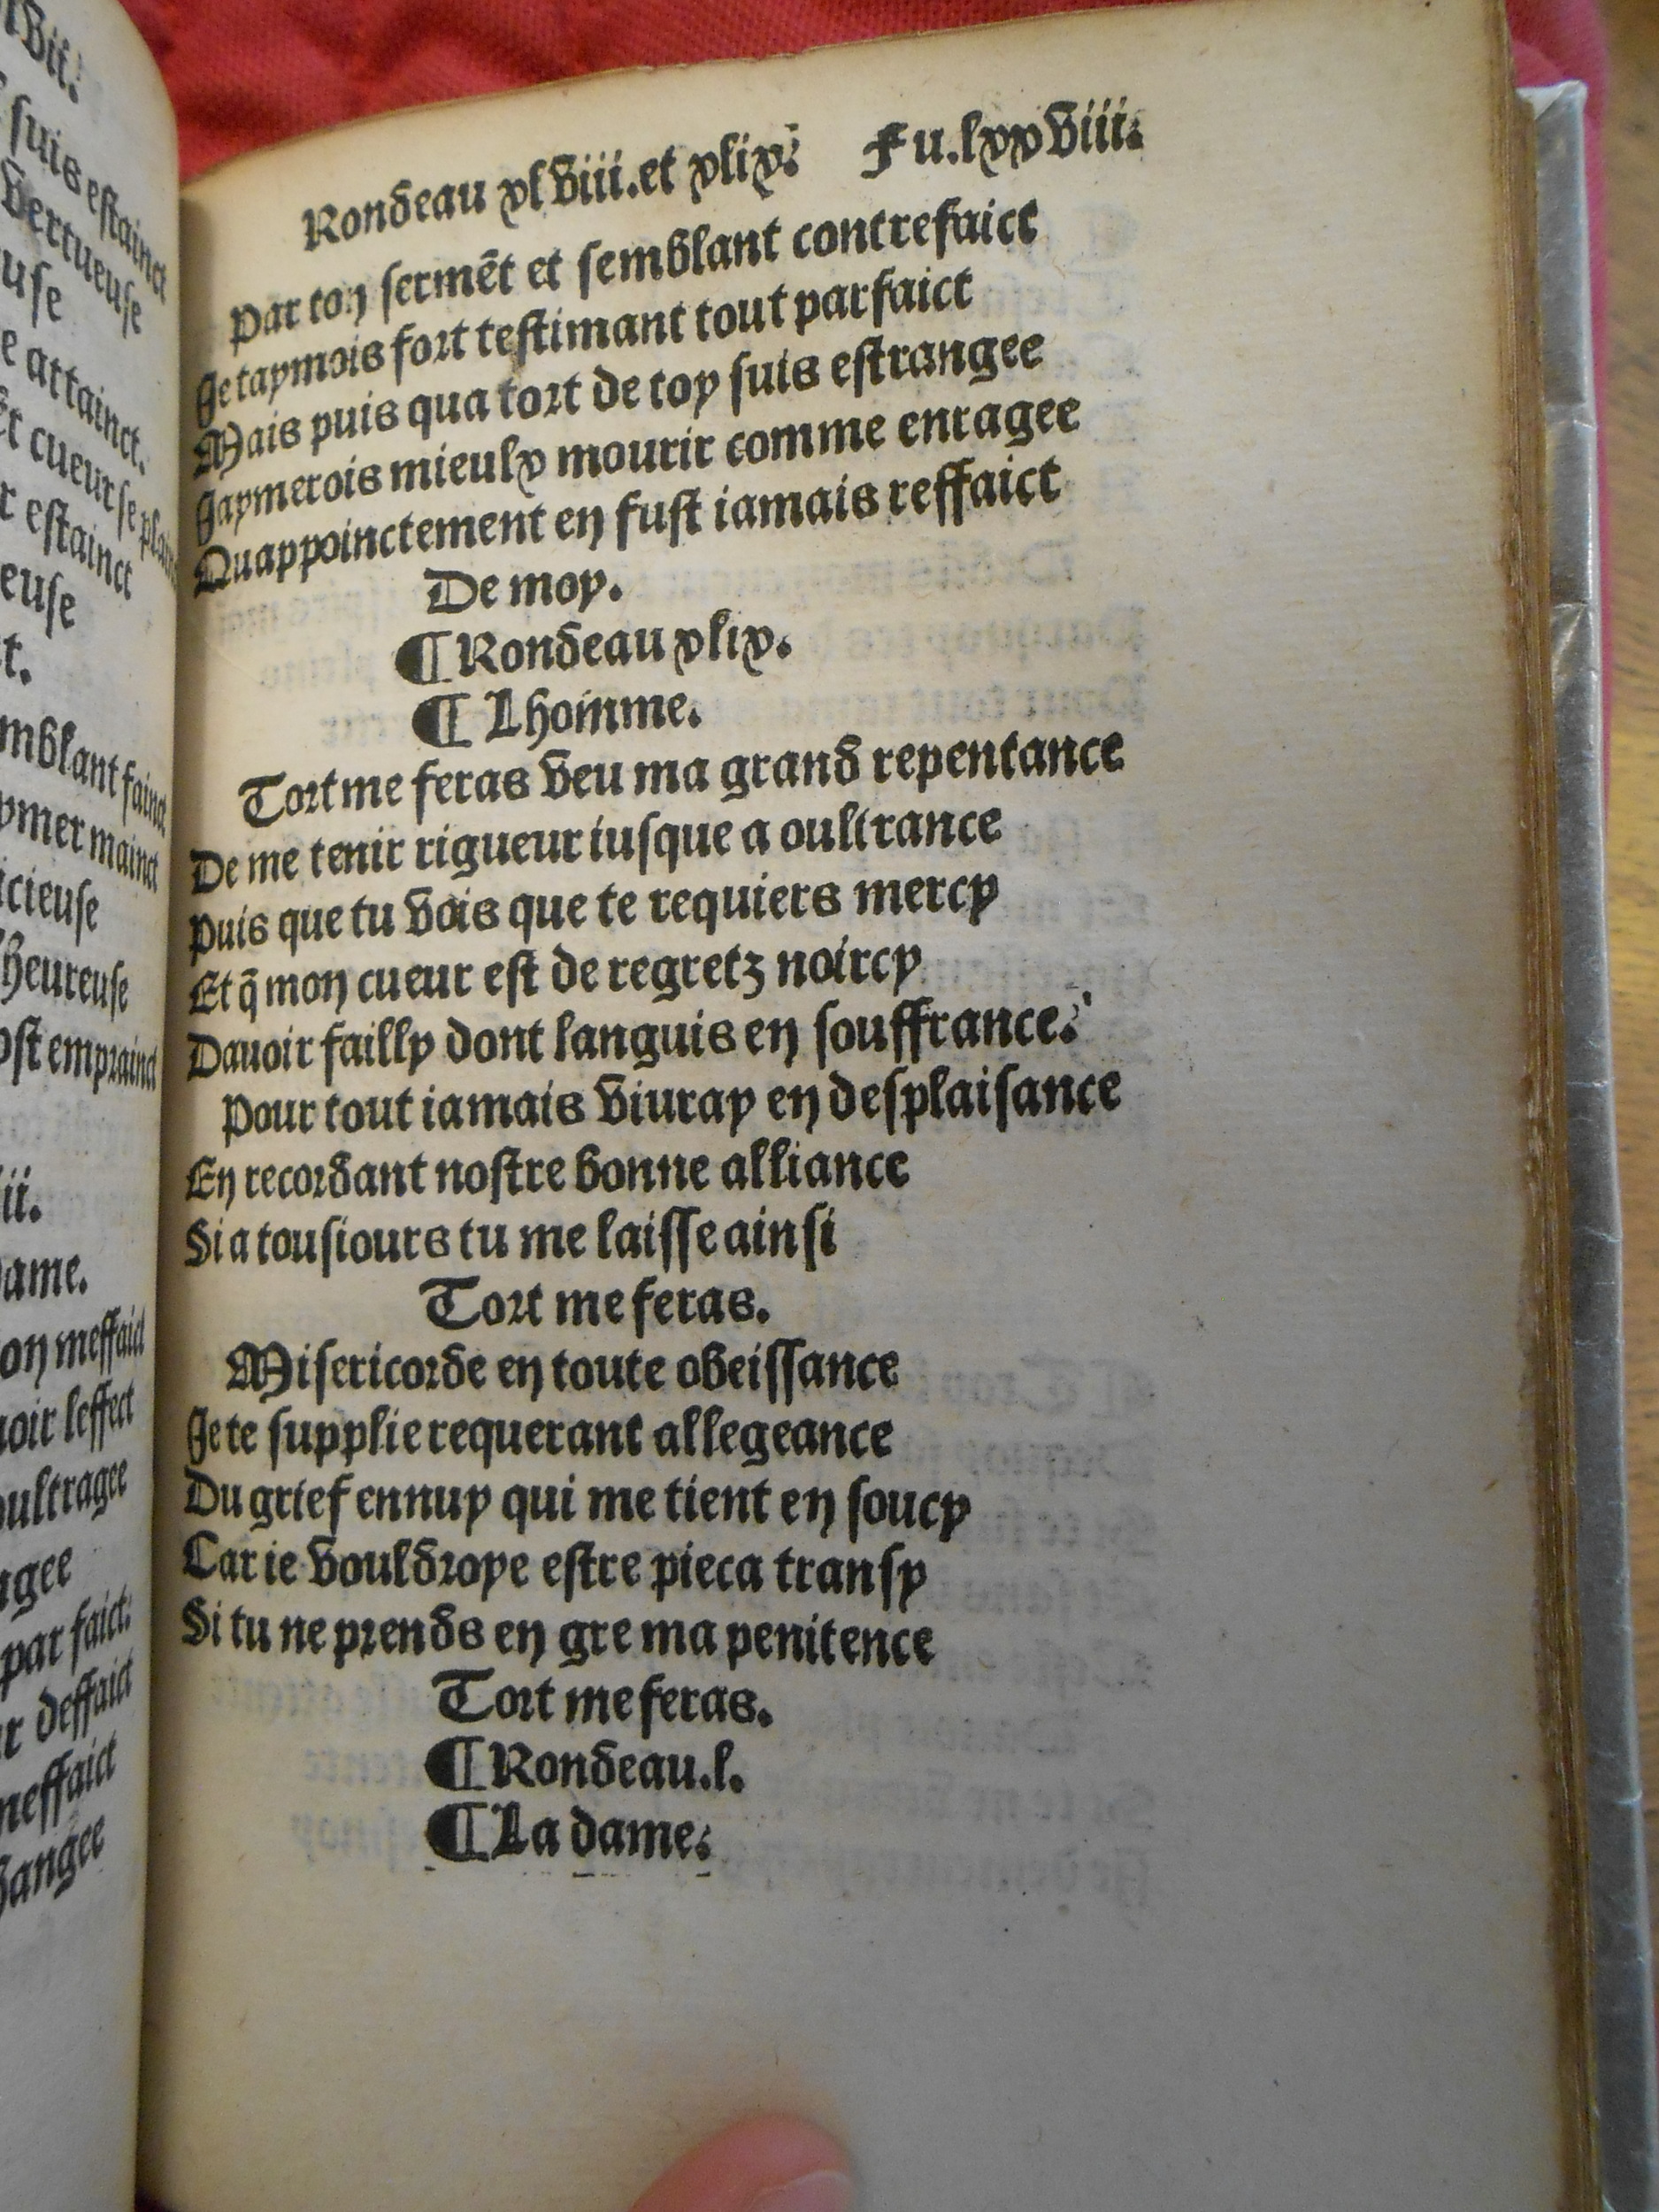 vii.
suis estainct
vertueuse
use
e attainct.
cueur se plainct
r estainct
euse
t.
mblant fainct
ymer mainct
icieuse
heureuse
ost emprainct
ii.
ame.
on meffaict
oir leffect
oultragee
gee
par faict:
r deffaict
meffaict
angee
Rondeau xlviii.et xlix. Fu.lxxviii.
Par ton sermēt et semblant contrefaict
Je taymois fort testimant tout parfaict
Mais puis qua tort de toy suis estrangee
Jaymerois mieulx mourir comme enragee
Quappoinctement en fust iamais reffaict
De moy.
¶ Rondeau xlix.
¶ Lhomme.
Tort me feras veu ma grand repentance
De me tenir rigueur iusque a oultrance
Puis que tu vois que te requiers mercy
Et q̄ mon cueur est de regretz noircy
Dauoir failly dont languis en souffrance.
Pour tout iamais viuray en desplaisance
En recordant nostre bonne alliance
Si a tousiours tu me laisse ainsi
Tort me feras.
Misericorde en toute obeissance
Je te supplie requerant allegeance
Du grief ennuy qui me tient en soucy
Car ie vouldroye estre pieca transy
Si tu ne prends en gre ma penitence
Tort me feras.
¶ Rondeau.l.
¶ La dame.